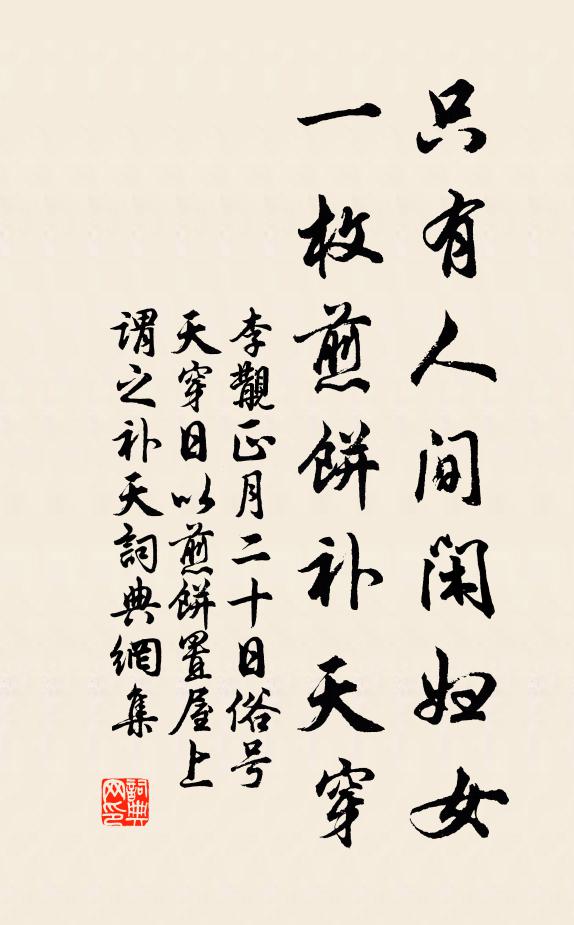 只有人间闲妇女
一枚煎餅补天穿
李覯正月二十日俗号
天穿日以煎餅置屋上
谓之补天詞典網集
詞典网印